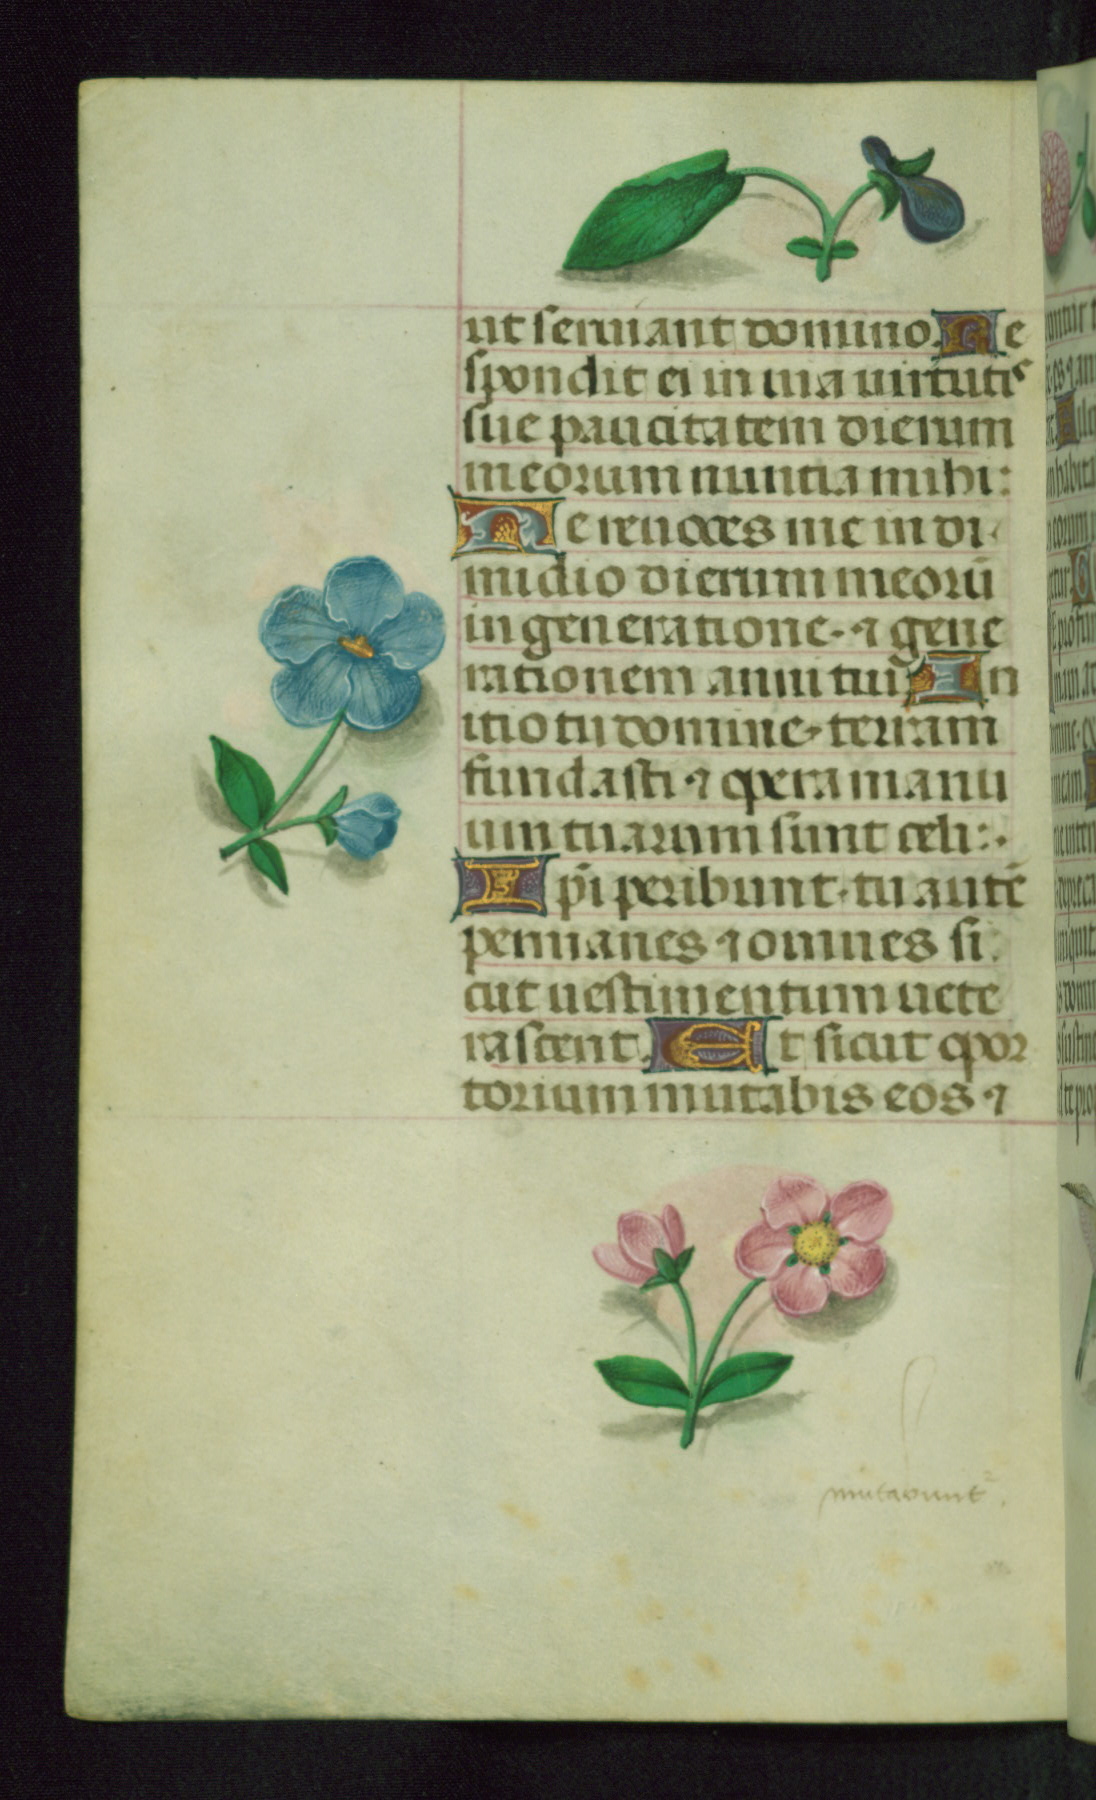 ut seruiant domino. Re
spondit ei in uia uirtutis
sue paucitatem dierum
meorum nuntia michi:
Ne reuoces me in di-
midio dierum meorū
in generatione· ⁊ gene
rationem anni tui. In
itio tu domine· terram
fundasti· ⁊ opera manu
um tuarum sunt celi:·
Ipi̅ peribunt· tu autē
permanes ⁊ omnes si
cut uestimentum uete
rascent. Et sicut opor
torium mutabis eos ⁊
mutabunt²